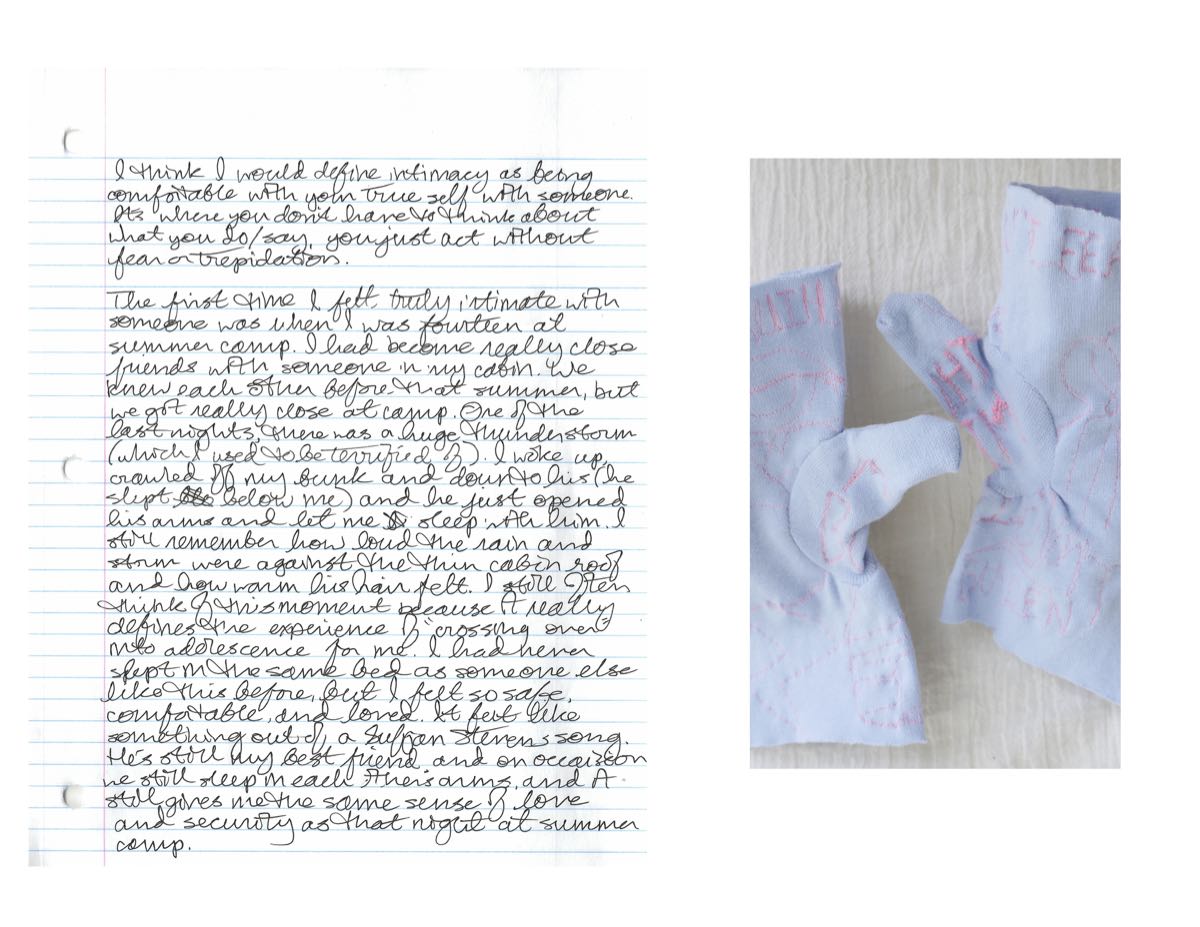 I think I would define intimacy as being
comfortable with your true self with someone.
Its where you don't have to think about
what you do/say, you just act without
fear or trepidation.
The first time I felt truly intimate with
someone was when I was fourteen at
summer camp. I had become really close
friends with someone in my cabin. We
knew each other before that summer, but
we got really close at camp. One of the
last nights, there was a huge thunderstorm
(which I used to be terrified of). I woke up,
crawled off my bunk and down to his (he
slept below me) and he just opened
his arms and let me sleep with him. I
still remember how loud the rain and
storm were against the thin cabin roof
and how warm his hair felt. I still often
think of this moment because it really
defines the experience of "crossing over"
into adolescence for me. I had never
slept in the same bed as someone else
like this before, but I felt so safe,
comfortable, and loved. It felt like
something out of a Sufjan Stevens song.
He's still my best friend and on occaision
we still sleep in each others arms, and it
still gives me the same sense of love
and security as that night at summer
camp.
FEA